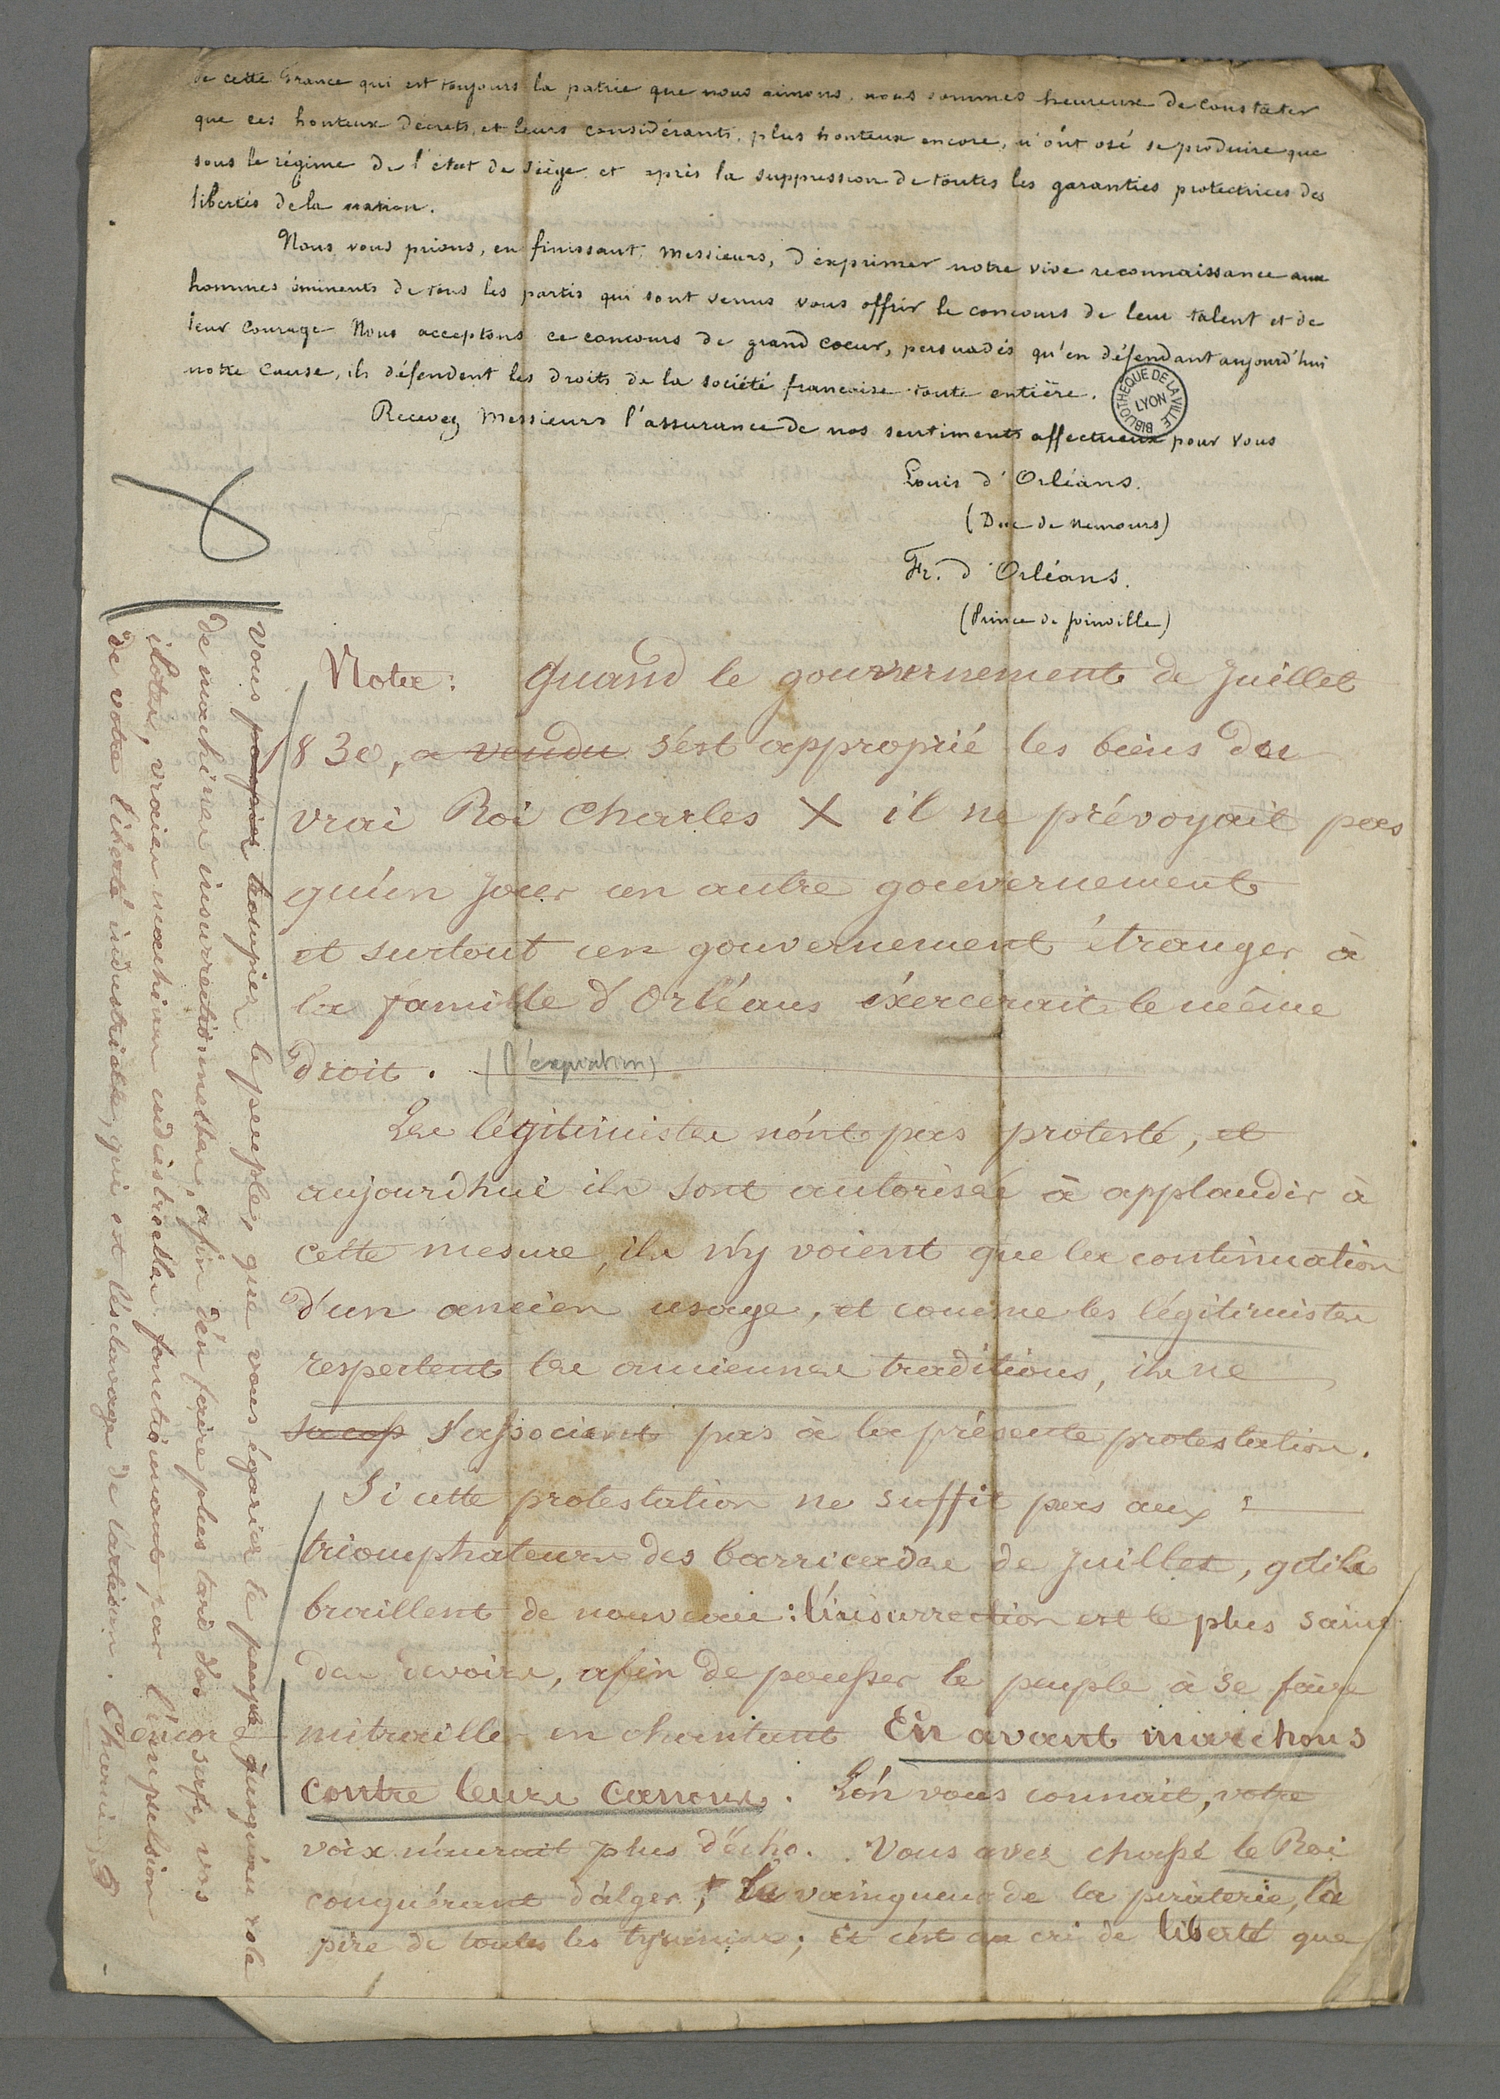 de cette France qui est toujours la patrie que nous aimons, nous sommes heureux de constater
que ces honteux décrets, et leurs considérants, plus honteux encore, n'ont osé se produire que
sous le régime de l'état de siège et après la suppression de toutes les garanties protectrices des
libertés de la nation.
Nous vous prions, en finissant, messieurs, d'exprimer notre vive reconnaissance aux
hommes éminents de tous les partis qui sont venus vous offrir le concours de leur talent et de
leur courage. Nous acceptons ce concours de grand coeur, persuadés qu'en défendant aujourd'hui
notre cause, ils défendent les droits de la société française toute entière.
BIBLIOTHEQUE DE LA VILLE LYON
Recevez Messieurs l'assurance de nos sentiments affectueux pour vous
Louis d'Orléans.
(Duc de Nemours)
Fr. d'Orléans.
(Prince de Joinville)
Notes: Quand le gouvernement de Juillet
1830, a vendu s'est approprié les biens du
vrai Roi Charles X il ne prévoyait pas
qu'un jour un autre gouvernement
et surtout un gouvernement étranger à
la famille d'Orléans éxercerait le même
droit. (l'expiation)
Les légitimistes n'ont pas protesté, et
aujourd'hui ils sont autorisés à applaudir à
cette mesure, ils n'y voient que la continuation
d'un ancien usage, et comme les légitimistes
respectent les anciennes traditions, ils ne
s'associent pas à la présente protestation.
Si cette protestation ne suffit pas aux
triomphateurs des barricades de Juillet, qu'ils
braillent de nouveau: l'insurrection est le plus saint
des devoirs, afin de pousser le peuple à se faire
mitrailler en chantant En avant marchons
contre leurs canons. L'on vous connait, votre
voix n'aurait plus d'écho. Vous avez chassé le Roi
conquérant d'alger, le vainqueur de la piraterie, la
pire de toutes les tyrannies; Et c'est au cri de liberté que
vous trompiez le peuple, que vous égariez le peuple jusqu'au rôle
de machines insurrectionnelles, afin d'en faire plus tard des serfs, vos
ilotes, vraies machines industrielles fonctionnant par l'impulsion
encore
de votre liberté industrielle, qui est l'esclavage de l'artisan.